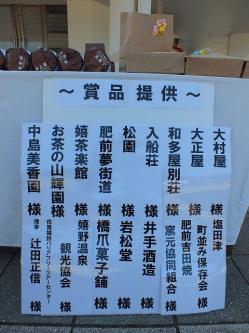 ～賞品 提供～
大村屋 様
塩田津町並み保存会 様
大正屋 様
肥前吉田焼窯元協同組合 様
和多屋別荘 様
入船荘 様
井手酒造 様
松園 様
岩松堂 様
肥前夢街道 様
橋爪菓子舗 様
嬉茶楽館 様
嬉野温泉観光協会 様
お茶の山輝園 様
佐賀嬉野バリアフリーツアーセンター
中島美香園 様
理事 辻田正信 様